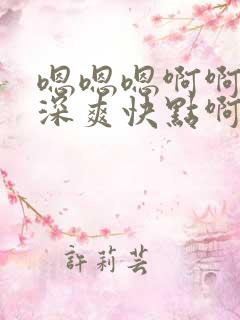 嗯嗯嗯啊啊
深爽快點啊
許莉芸